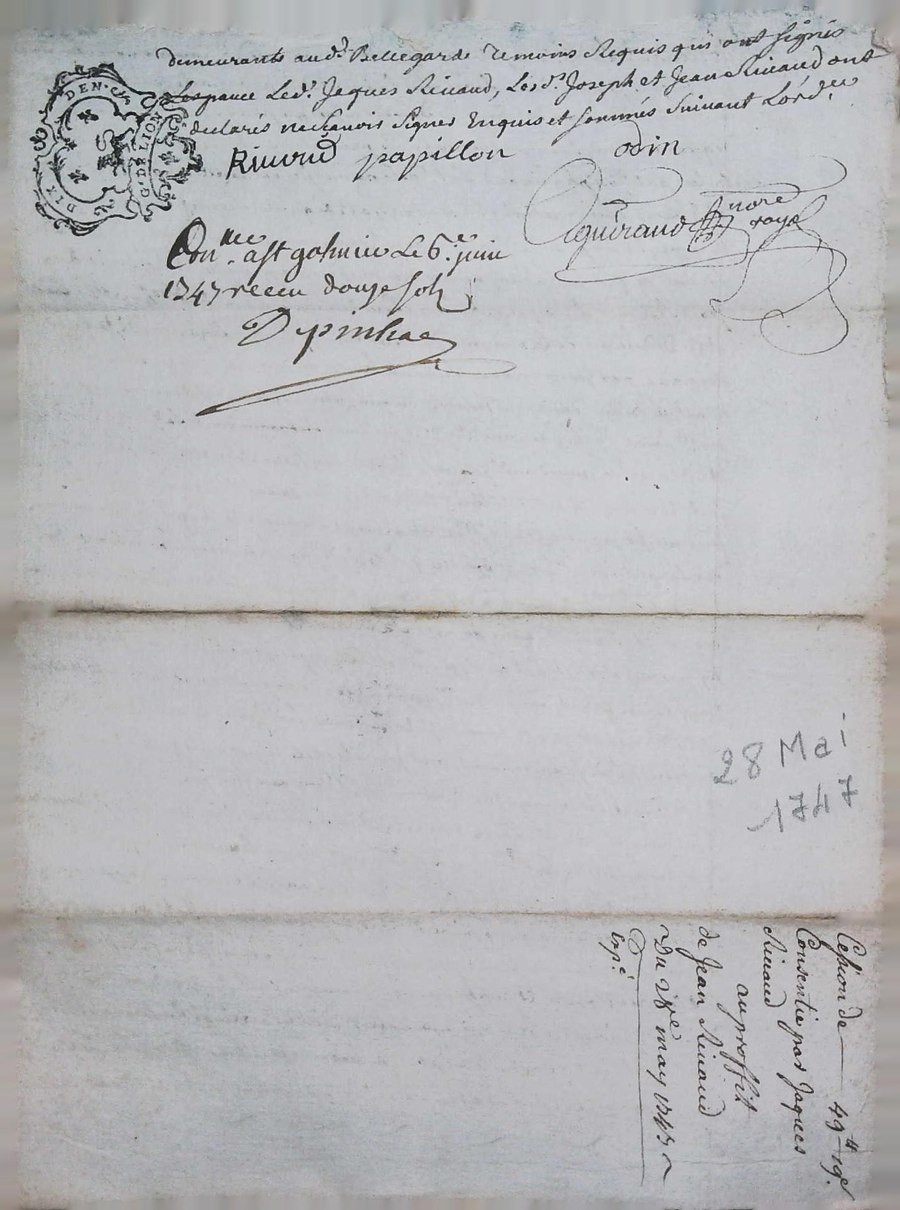 demeurants aud.t Bellegarde temoins Requis qui ont signés
Led.t Jaques Rivaud, Lesd.t Joseph et Jean Rivaud ont
declarés ne scavoir signer Enquis et sommés suivant Lord.ce
Rivaud papillon odin
DEN·CS
G·DE LION
DIX
guéraud nore royal
Con.lle a St galmier Le 6.e juin
1747 receu douze sols
Depinhac
28 Mai
1747
Cession de 49tt 19s
Consentie par Jaques
Rivaud
au proffit
de Jean Rivaud
Du 28e may 1747
Exp.é